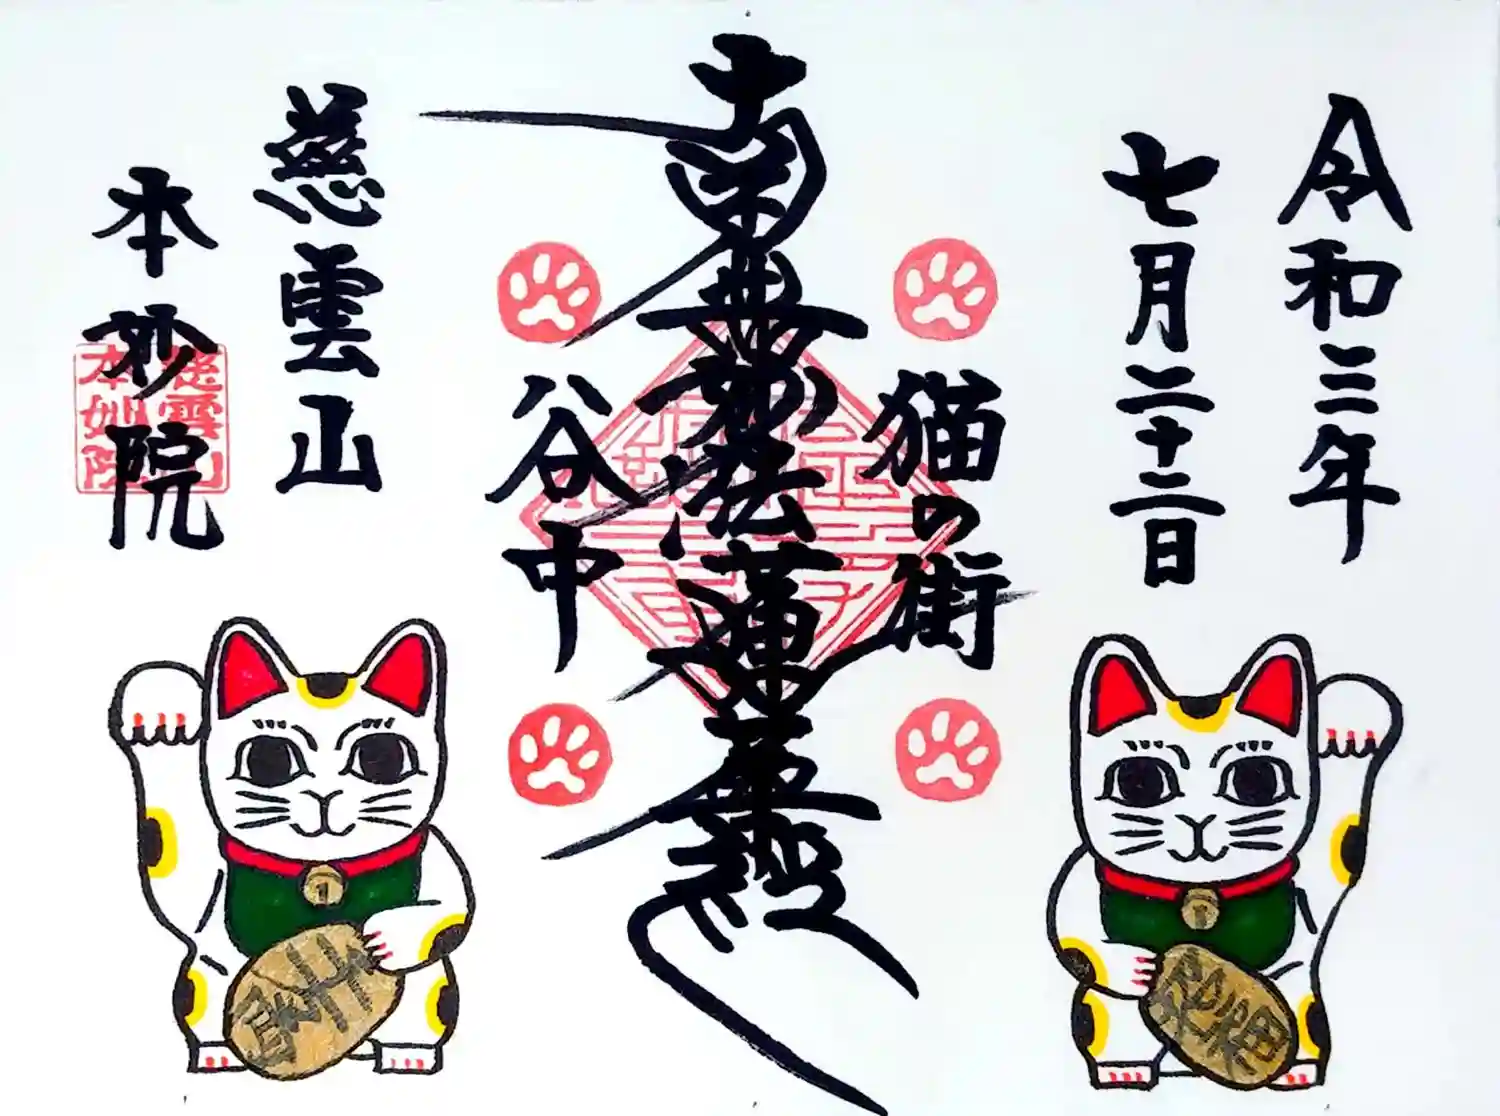 令和三年
七月二十二日
猫の街
南無妙法蓮華経
谷中
慈雲山
本妙院
慈雲山
本妙院